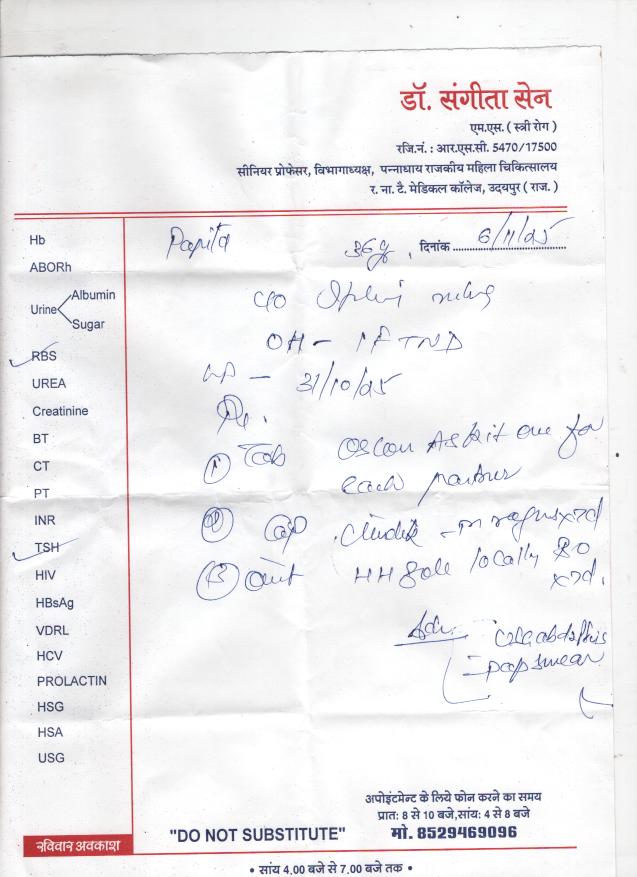 डॉ. संगीता सेन
एम.एस. ( स्त्री रोग )
रजि.नं. : आर.एस.सी. 5470/17500
सीनियर प्रोफेसर, विभागाध्यक्ष, पन्नाधाय राजकीय महिला चिकित्सालय
र. ना. टै. मेडिकल कॉलेज, उदयपुर ( राज. )
36y दिनांक 6/11/25
Hb
ABORh
Urine Albumin
Sugar
RBS
UREA
Creatinine
BT
CT
PT
INR
TSH
HIV
HBsAg
VDRL
HCV
PROLACTIN
HSG
HSA
USG
c/o
OH - 1 FTND
31/10/25
① Tab As kit one for
each partner
② Cap
③ oint locally
Adv.
- pap smear
अपोइंटमेन्ट के लिये फोन करने का समय
प्रातः 8 से 10 बजे, सायंः 4 से 8 बजे
"DO NOT SUBSTITUTE" मो. 8529469096
रविवार अवकाश
• सांय 4.00 बजे से 7.00 बजे तक •